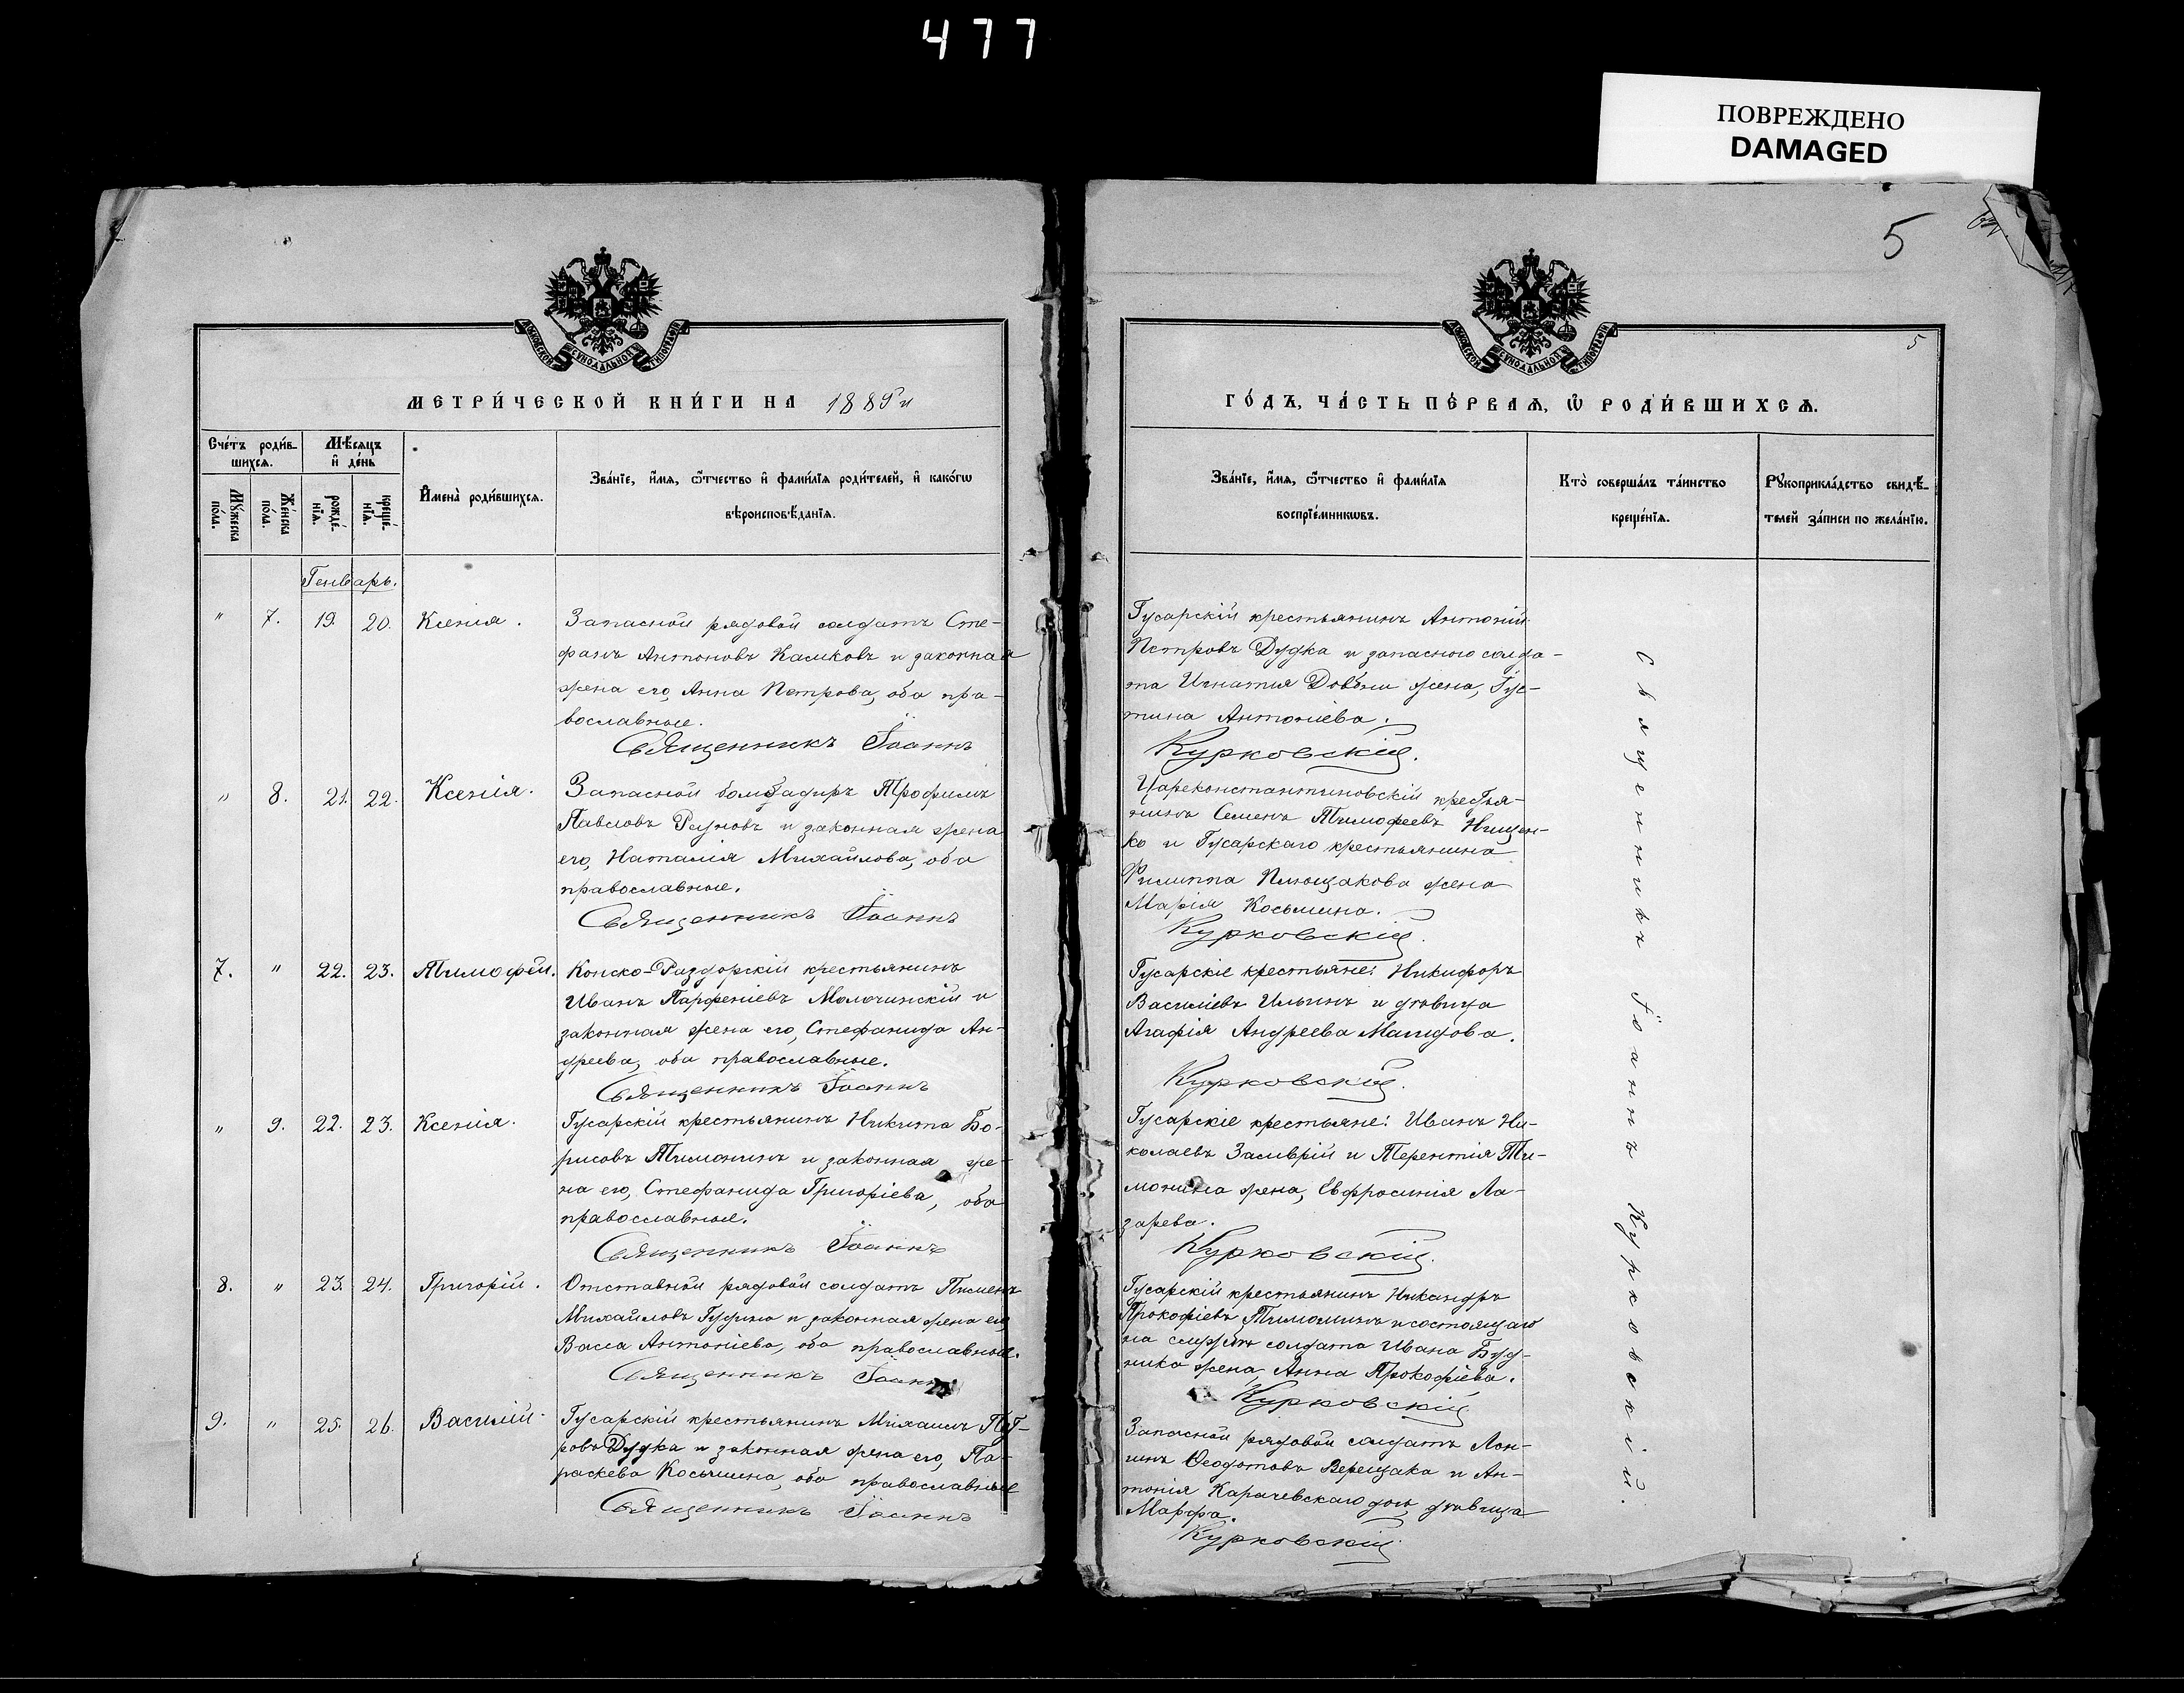 477
ПОВРЕЖДЕНО
DAMAGED
5
МОСКОВСКОЙ СѴНОДАЛЬНОЙ ТИПОГРАФІИ
МОСКОВСКОЙ СѴНОДАЛЬНОЙ ТИПОГРАФІИ
5
МЕТРИ́ЧЕСКОЙ КНИ́ГИ НА 1889й
ГО́ДЪ, ЧА́СТЬ ПЕ́РВАЯ, Ѡ РОДИ́ВШИХСЯ.
Сче́тъ роди́в-
шихся.
Мѣ́сяцъ
и҆ де́нь
И҆мена̀ роди́вшихся.
Зва́нїе, и҆́мя, ѻ҆́тчество и҆ фами́лїя роди́телей, и҆ како́гѡ
вѣроисповѣ́данїя.
Мꙋ́жеска
по́ла.
Же́нска
по́ла.
рожде́-
нїя.
креще́-
нїя.
Зва́нїе, и҆́мя, ѻ҆́тчество и҆ фами́лїя
воспрїе́мникѡвъ.
Кто̀ соверша́лъ та́инство
креще́нїя.
Рꙋкоприкла́дство свидѣ́-
телей за́писи по жела́нїю.
Генварь.
" 7. 19. 20. Ксенія. Запасной рядовой солдатъ Сте-
фанъ Антоновъ Каликовъ и законная
жена его, Анна Петрова, оба пра-
вославные.
Священникъ Іоаннъ
Гусарскій крестьянинъ Антоній
Петровъ Дудка и запасного солда-
та Игнатія Довбни жена, Іус-
тина Антоніева.
Курковскій.
" 8. 21. 22. Ксенія. Запасной бомбадиръ Трофимъ
Павловъ Раумовъ и законная жена
его, Наталія Михайлова, оба
православные.
Священникъ Іоаннъ
Цареконстантиновскій крестья-
нинъ Семенъ Тимофеевъ Нищен-
ко и Гусарскаго крестьянина
Филиппа Плющакова жена
Марія Косьмина.
Курковскій.
7. " 22. 23. Тимофей. Конско-Раздорскій крестьянинъ
Иванъ Парфеніевъ Молочинскій и
законная жена его, Стефанида Ан-
дреева, оба православные.
Священникъ Іоаннъ
Гусарскіе крестьяне: Никифоръ
Василіевъ Ильинъ и дѣвица
Агафія Андреева Магидова.
Курковскій.
" 9. 22. 23. Ксенія. Гусарскій крестьянинъ Никита Бо-
рисовъ Тимонинъ и законная же-
на его, Стефанида Григоріева, оба
православные.
Священникъ Іоаннъ
Гусарскіе крестьяне: Иванъ Ни-
колаевъ Заливрій и Терентія Ти-
монина жена, Евфросинія Ла-
зарева.
Курковскій.
8. " 23. 24. Григорій. Отставной рядовой солдатъ Пименъ
Михайловъ Гудина и законная жена его
Васса Антоніева, оба православные.
Священникъ Іоаннъ
Гусарскій крестьянинъ Никандръ
Прокофіевъ Тимонинъ и состоящаго
на службѣ солдата Ивана Буд-
ника жена, Анна Прокофіева.
Курковскій
9. " 25. 26. Василій. Гусарскій крестьянинъ Михаилъ Пет-
ровъ Дудка и законная жена его, Па-
раскева Косьмина, оба православные
Священникъ Іоаннъ
Запасной рядовой солдатъ Лон-
гинъ Ѳеодотовъ Верещака и Ан-
тонія Карачевскаго дочь дѣвица
Марфа.
Курковскій
Священникъ Іоаннъ Курковскій.